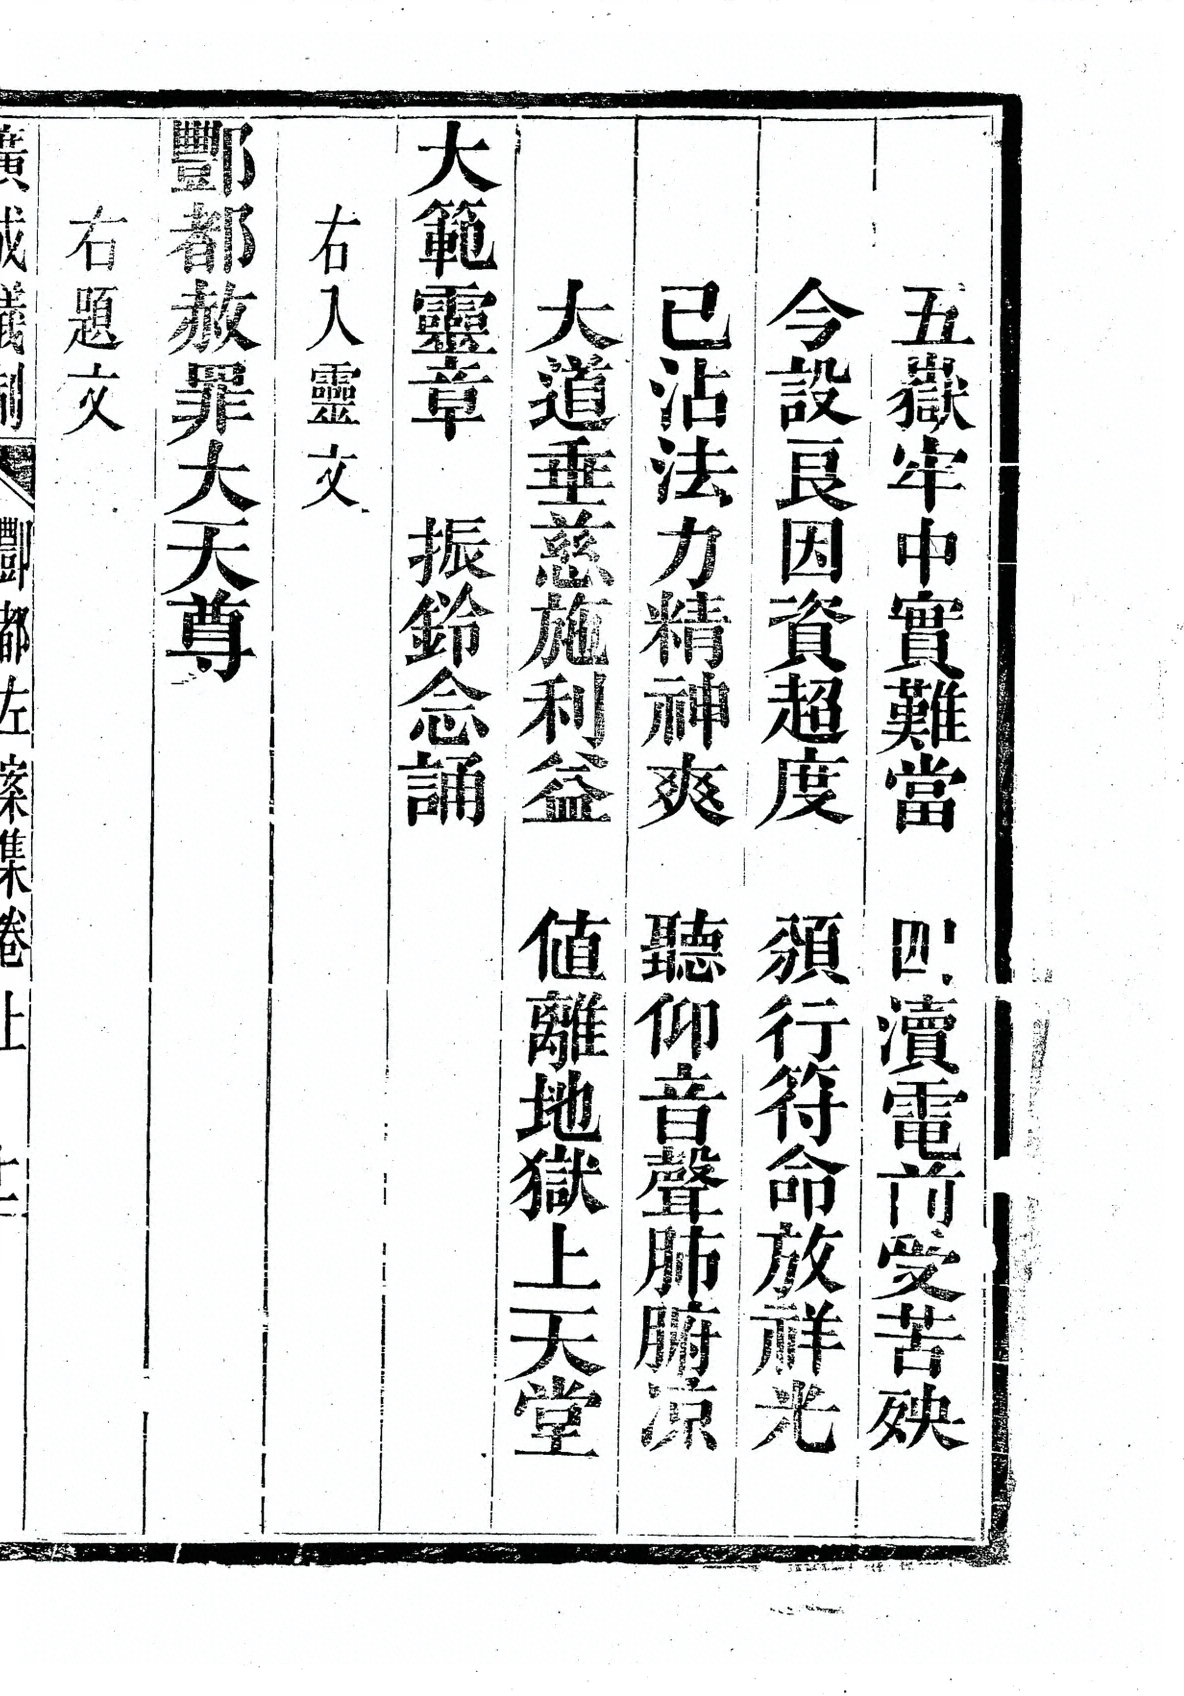 五嶽牢中實難當　四瀆電前受苦殃
今設良因資超度　須行符命放祥光
已沾法力精神爽　聽仰音聲肺腑凉
大道垂慈施利益　値離地獄上天堂
大範靈章　振鈴念誦
右入靈文
酆都赦罪大天尊
右題文
廣成儀制　酆都左案集卷上　十二